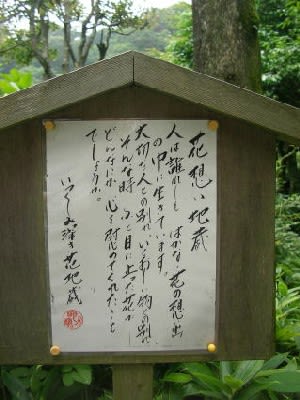 花想い地蔵
人は誰れしも はかない花の想い出
の中に生きています。
大切な人との別れ、いとおしい物との別れ
そんな時 ふと目に止った花が
どんなにか 心を対応してくれたこと
でしょうか。
いつくしみ深き花地蔵